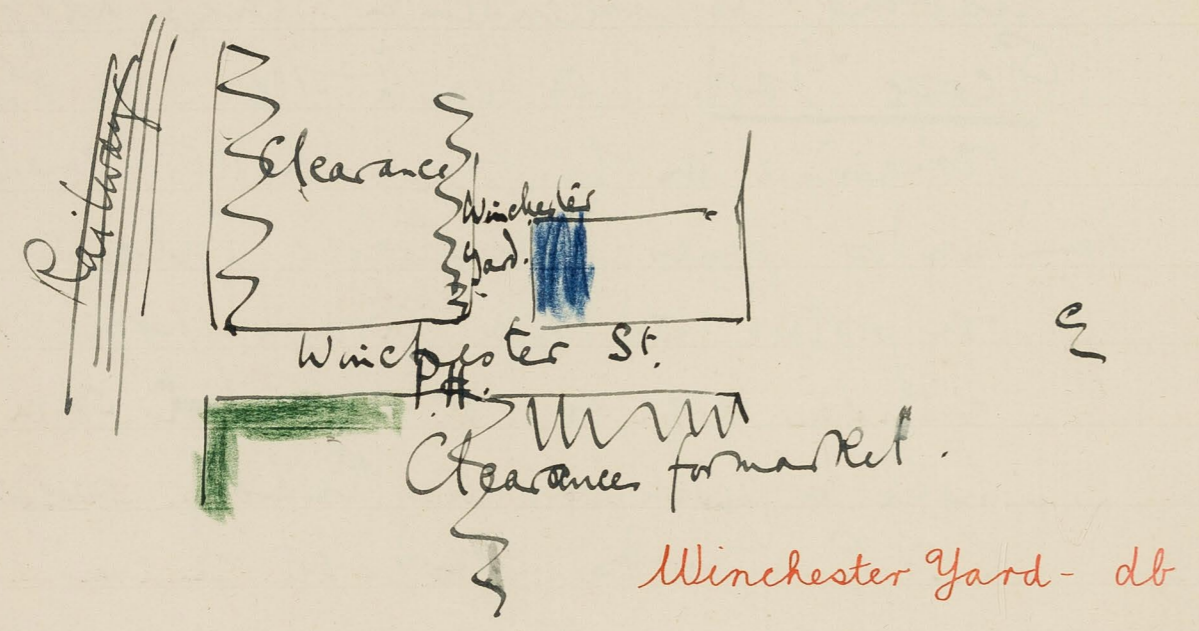 Railway
Clearance
Winchester
Yard.
Winchester St.
P.H.
Clearances for market.
Winchester Yard - db